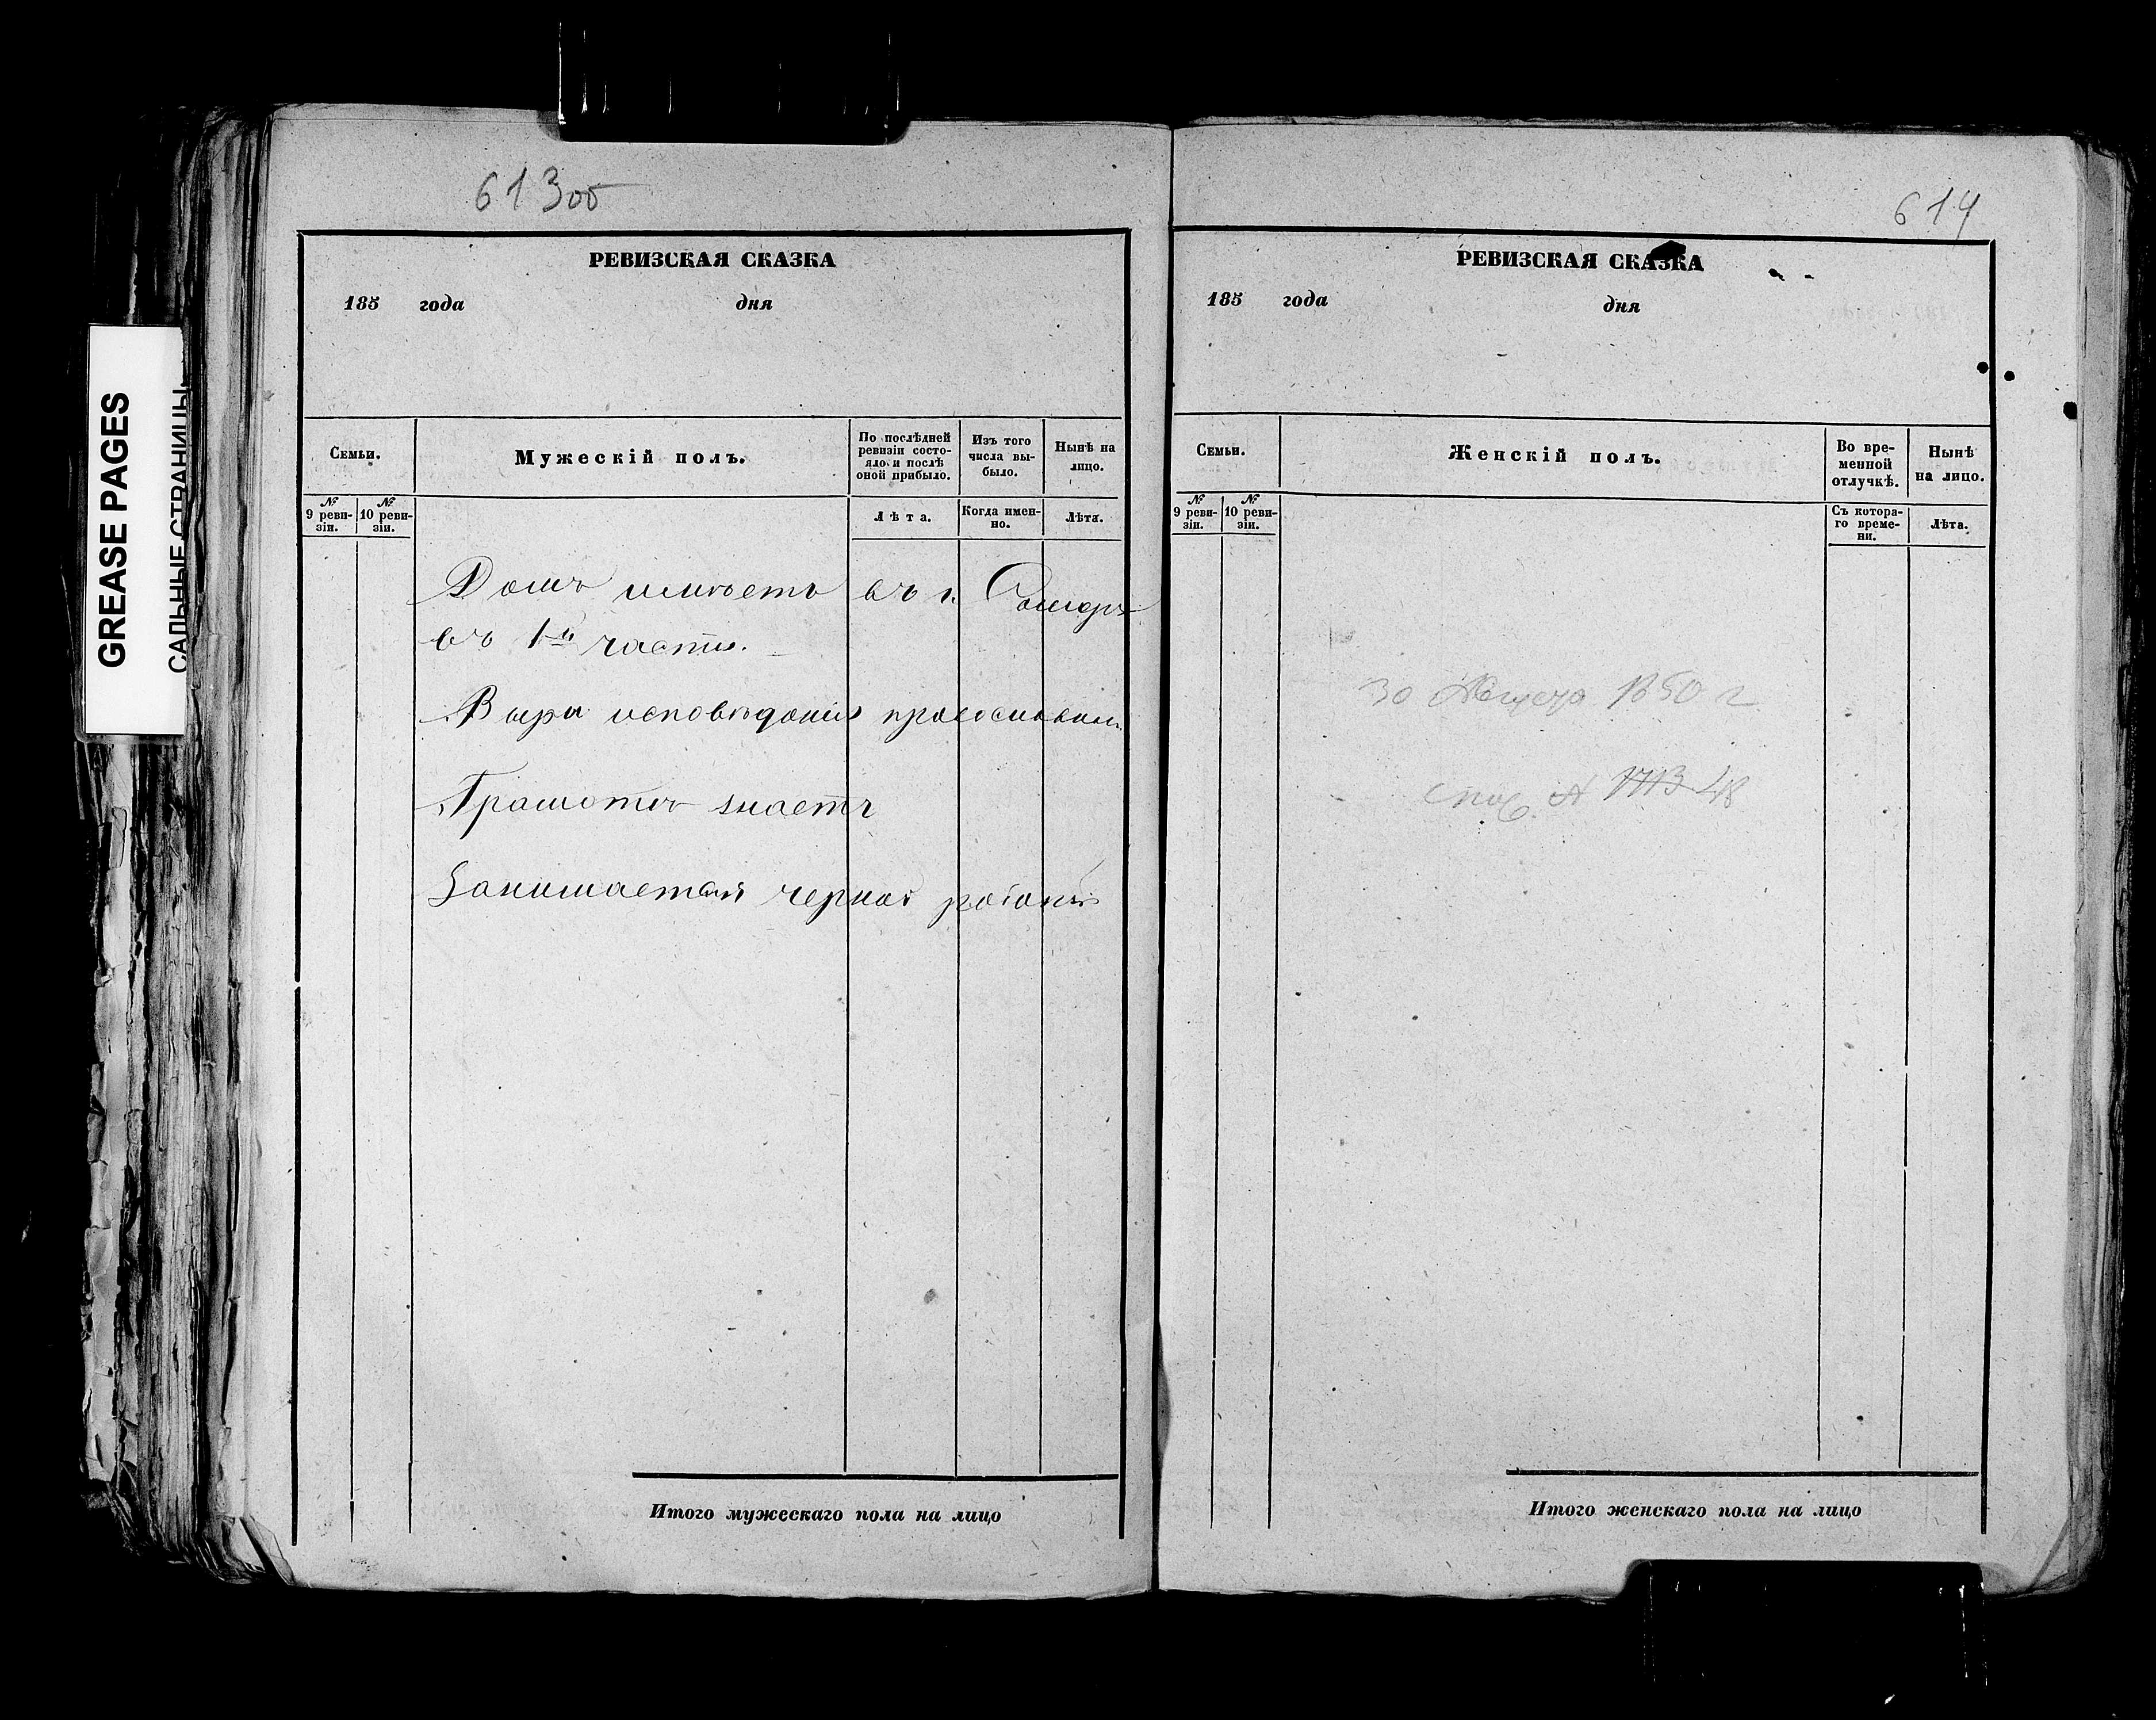 GREASE PAGES
САЛЬНЫЕ СТРАНИЦЫ
613об
РЕВИЗСКАЯ СКАЗКА
185 года дня
Семьи.
Мужескій полъ.
По послѣдней
ревизіи состо-
яло и послѣ
оной прибыло.
Изъ того
числа вы-
было.
Нынѣ на
лицо.
№
9 реви-
зіи.
№
10 реви-
зіи.
Лѣта.
Когда имен-
но.
Лѣта.
Домъ имѣетъ въ г. Самарѣ
въ 1й части.
Вѣры исповѣданія православн.
Грамотѣ знаетъ
Занимается черной работой
Итого мужескаго пола на лицо
614
РЕВИЗСКАЯ СКАЗКА
185 года дня
Семьи.
Женскій полъ.
Во вре-
менной
отлучкѣ.
Нынѣ
на лицо.
№
9 реви-
зіи.
№
10 реви-
зіи.
Съ котора-
го време-
ни.
Лѣта.
30 1850 г.
Итого женскаго пола на лицо